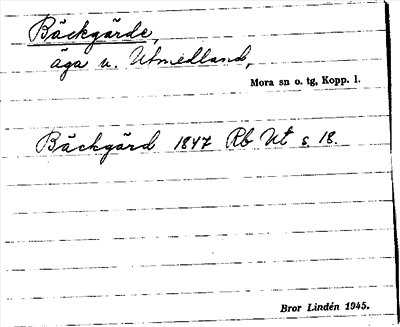 Bäckgärde,
äga v. Utmedland,
Mora sn o. tg, Kopp. l.
Bäckgärd 1847 Rb Ut s. 18.
Bror Lindén 1945.